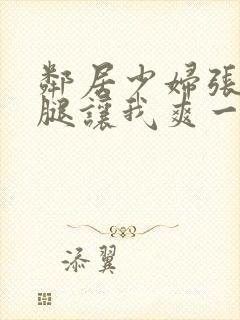 鄰居少婦張
腿讓我爽一
添翼